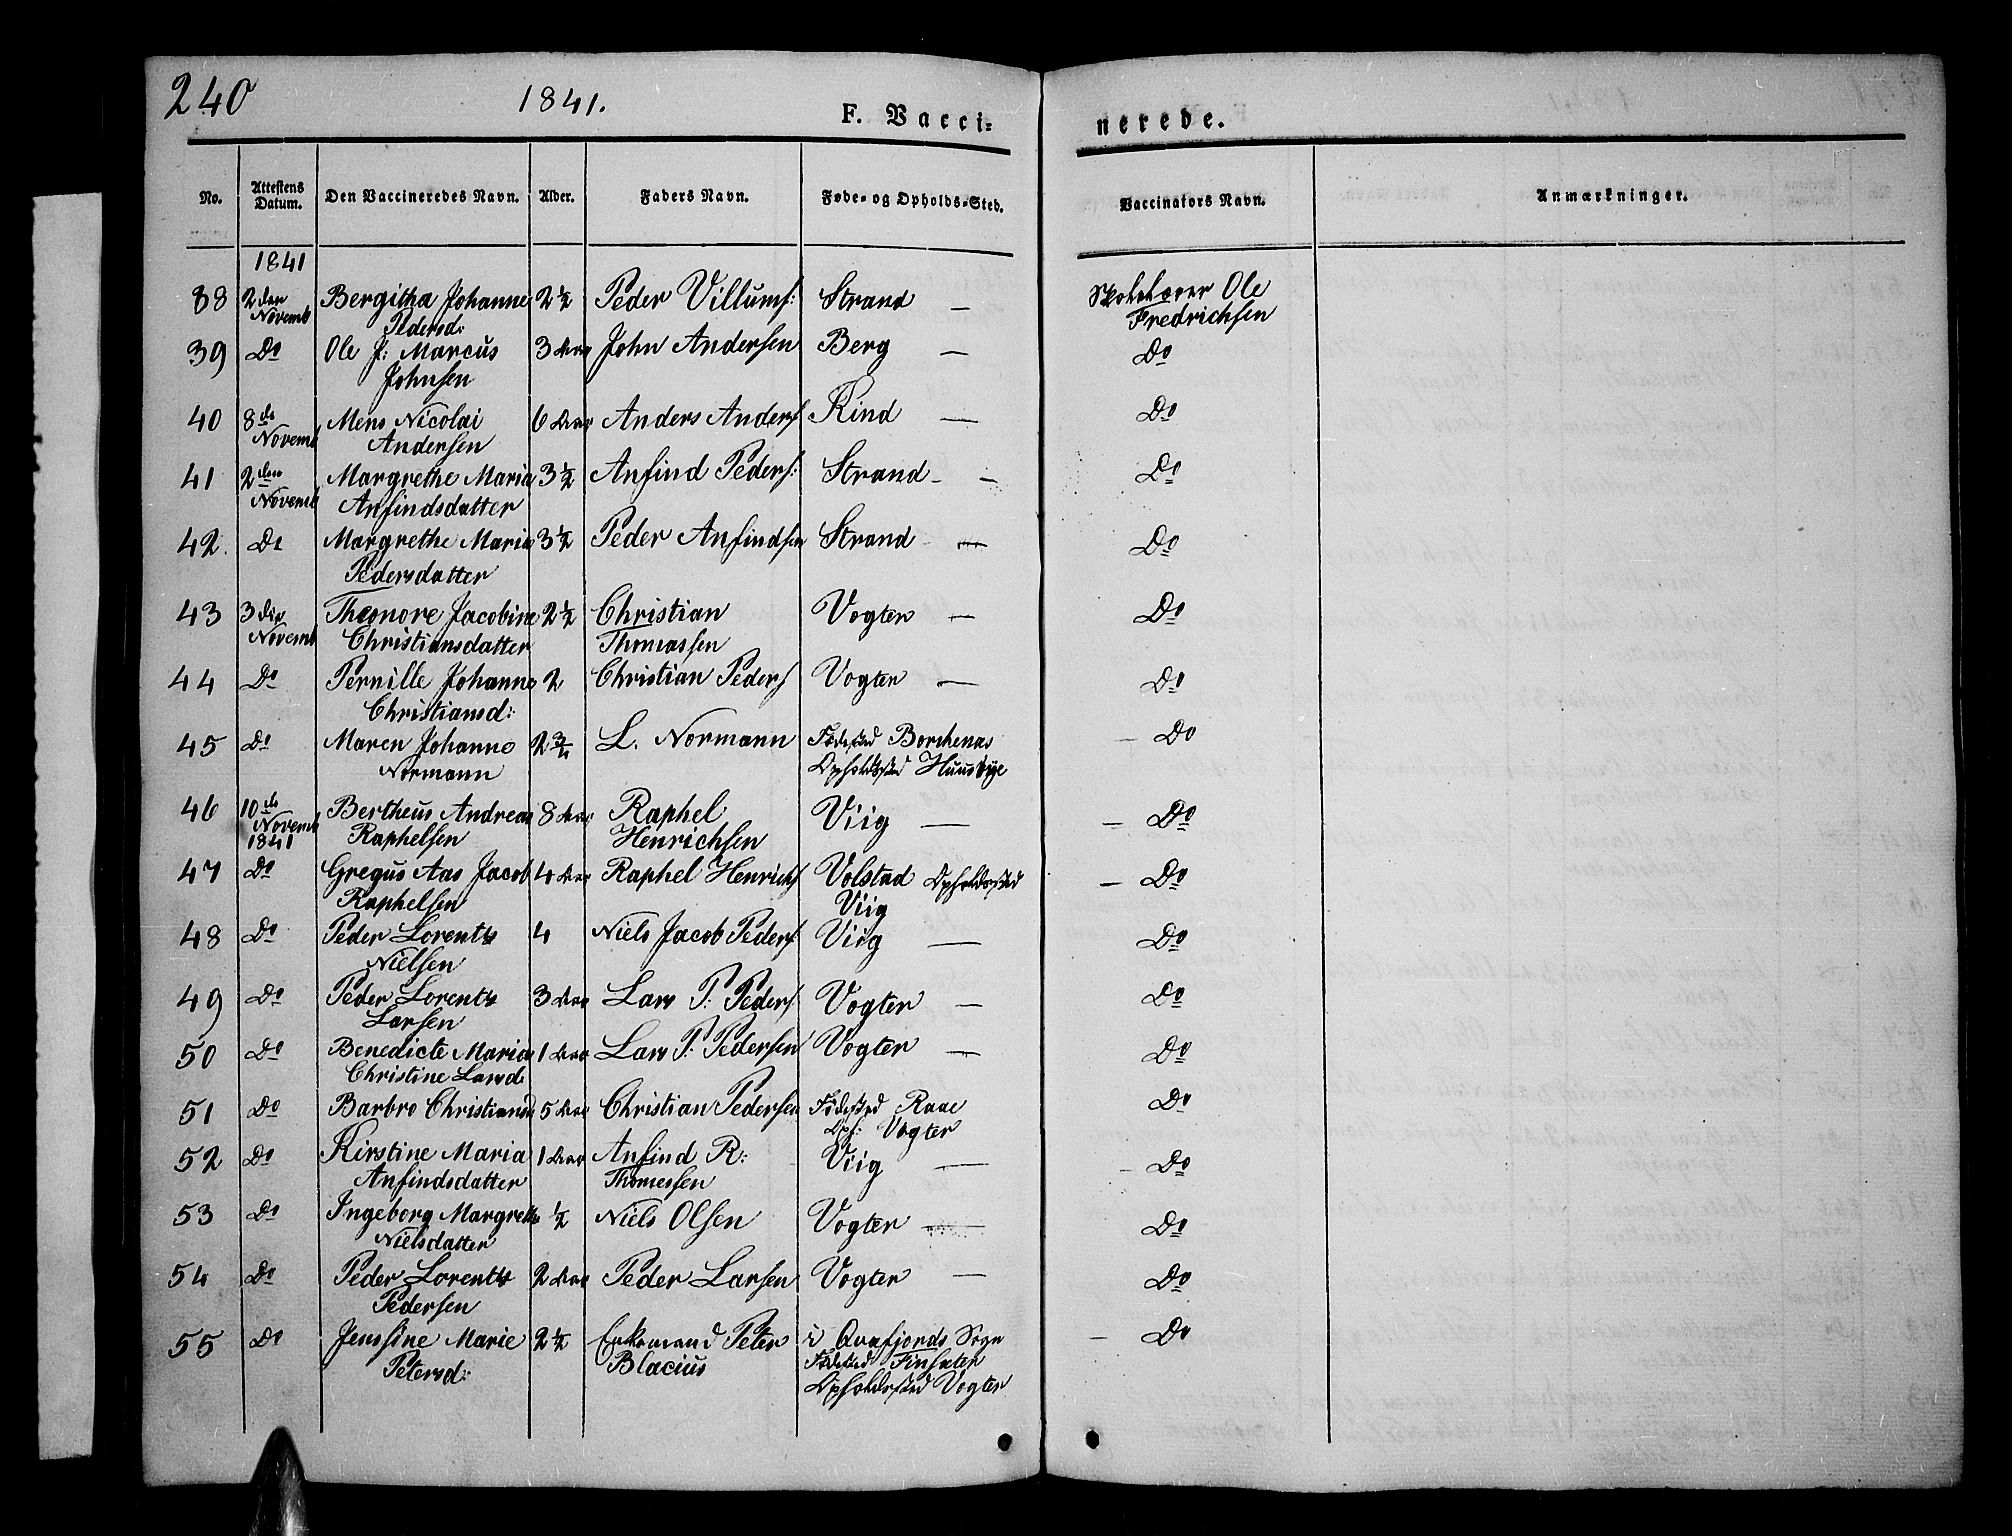 240 1841. F. Vacci- nerede.
No. Attestens Datum. Den Vaccineredes Navn. Alder. Faders Navn. Føde- og Opholds-Sted. Vaccinators Navn. Anmærkninger.
1841
38 2den Bergitha Johanne 2½ Peder Villums: Strand — Skolelærer Ole
Novemb Pedersd: Fredrichsen
39 Do Ole J: Marcus 3 Aar John Andersen Berg — Do
Johnsen
40 8de Mens Nicolai 6 Aar Anders Anders Kind — Do
Novemb Andersen
41 2den Margrethe Maria 3½ Anfind Peders: Strand — Do
Novemb Anfindsdatter
42. Do Margrethe Maria 3½ Peder Anfindsen Strand — Do
Pedersdatter
43 3die Theonore Jacobine 2½ Christian Vogter — Do
Novemb Christiansdatter Thomassen
44 Do Pernille Johanne 2 Christian Peders Vogter — Do
Christiansd:
45 Do Maren Johanne 2¾ L. Normann Fødested Borchenes — Do
Normann Opholdssted
46 10de Bertheus Andreas 8 Aar Raphel Viig — — Do
Novemb Raphelsen Henrichsen
1841
47 Do Gregus Aas Jacob 4 Aar Raphel Henrichs Volstad Opholdssted — Do
Raphelsen Viig
48 Do Peder Lorents 4 Niels Jacob Peders: Viig — Do
Nielsen
49 Do Peder Lorents 3 Aar Lars P: Peders Vogter — Do
Larsen
50 Do Benedicte Maria 1 Aar Lars P: Pedersen Vogter — Do
Christine Larsd
51 Do Barbro Christiansd 5 Aar Christian Pedersen Fødested Raae Do
Oph: Vogter
52 Do Kirstine Maria 1 Aar Anfind R: Viig — — Do
Anfindsdatter Thomessen
53 Do Ingeborg Margrethe ½ Niels Olsen Vogter — Do
Nielsdatter
54 Do Peder Lorents 2 Aar Peder Larsen Vogter — Do
Pedersen
55 Do Jensine Marie 2½ Enkemand Peter i Qvæfjords Sogn — Do
Petersd: Blacius Fødested Finsæter
Opholdssted Vogter